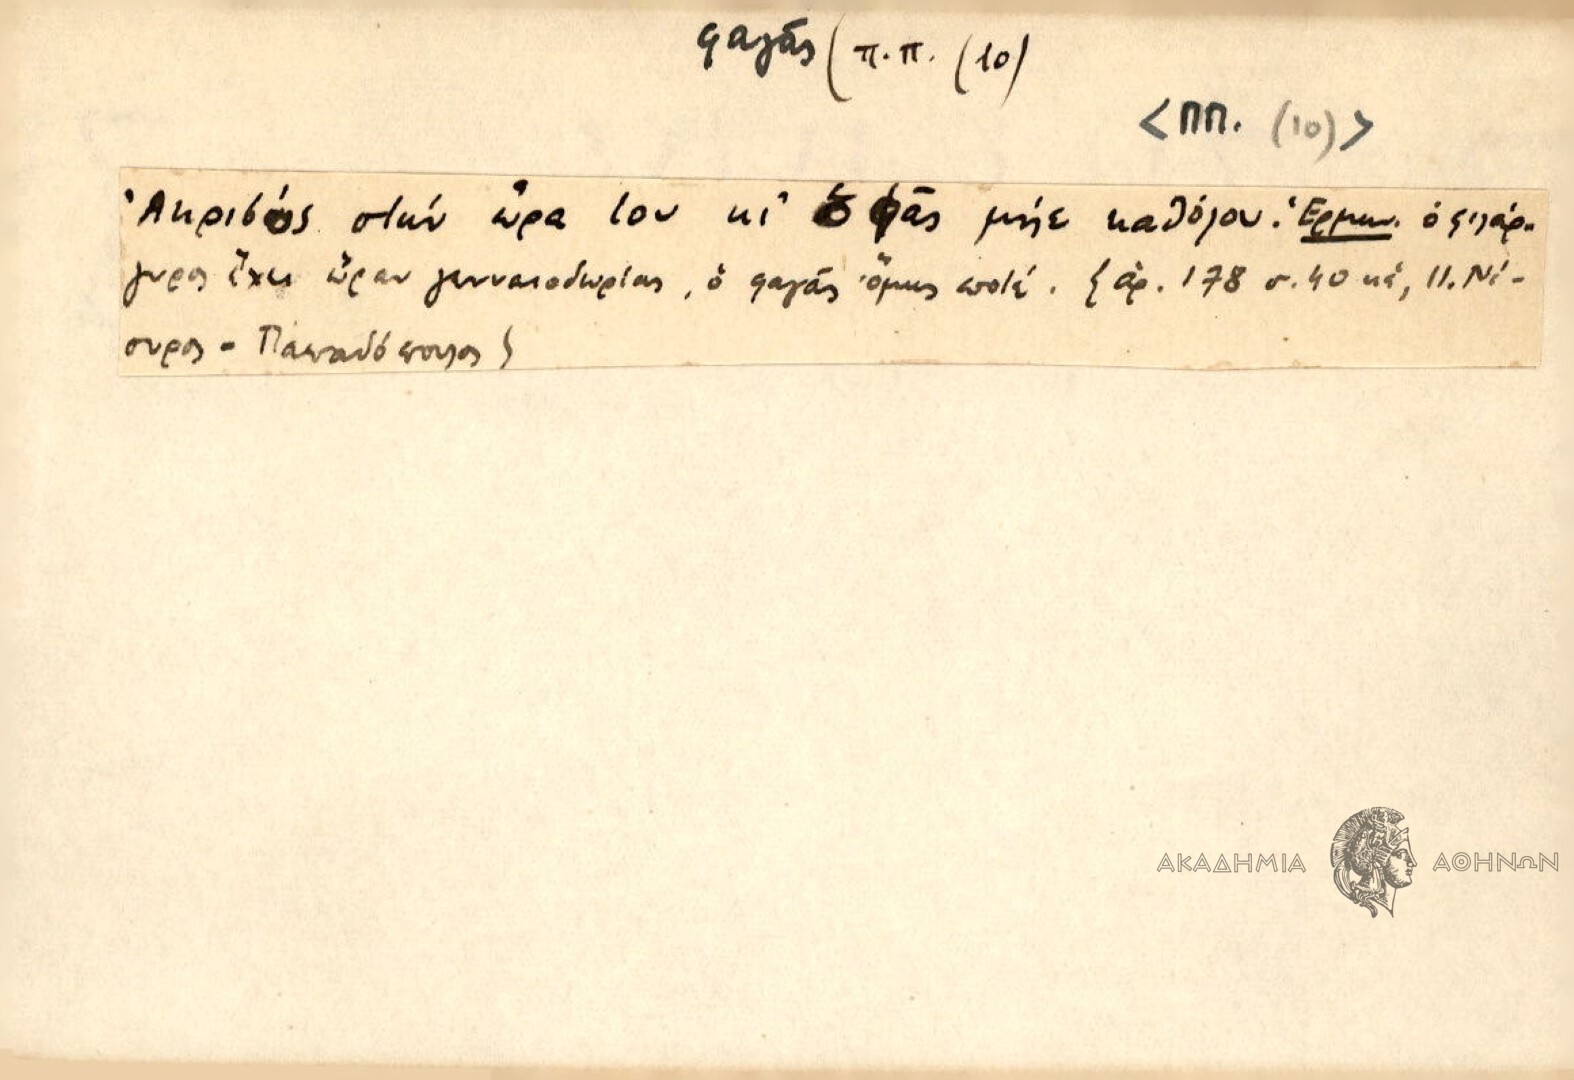 φαγᾶς (π.π. (10)
<ΠΠ. (10)>
Ἀκριβὸς στὴν ὥρα του κι' ὁ φᾶς μήε καθόλου. Ἑρμην. ὁ φιλάρ-
γυρος ἔχει ὥραν γενναιοδωρίας, ὁ φαγᾶς ὅμως ποτέ. { ἀρ. 178 σ. 40 κέ, 11. Νί-
συρος - Παπαδόπουλος }
ΑΚΑΔΗΜΙΑ ΑΘΗΝΩΝ